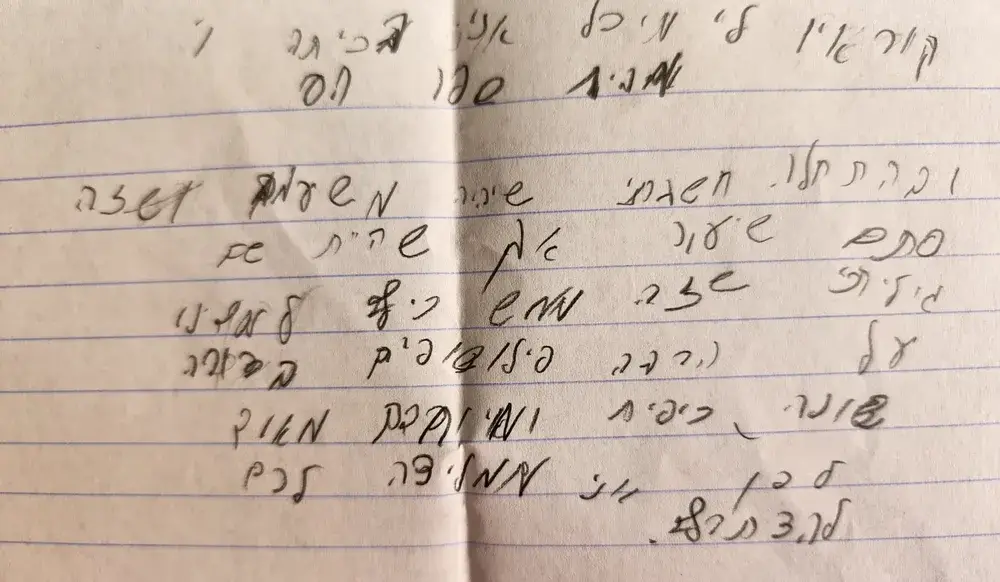 קוראין לי מיכל אני בכיתה ו
מבית ספר הס
ובהתחלה חשבתי שיהיה משעמם ושזה
סתם שיעור אך שהית שם
גיליתי שזה ממש כיף למדנו
על הרבה פילוסופים בצורה
שונה, כיפית ומיוחדת מאוד
לכן אני ממליצה לכם
להצתרף.